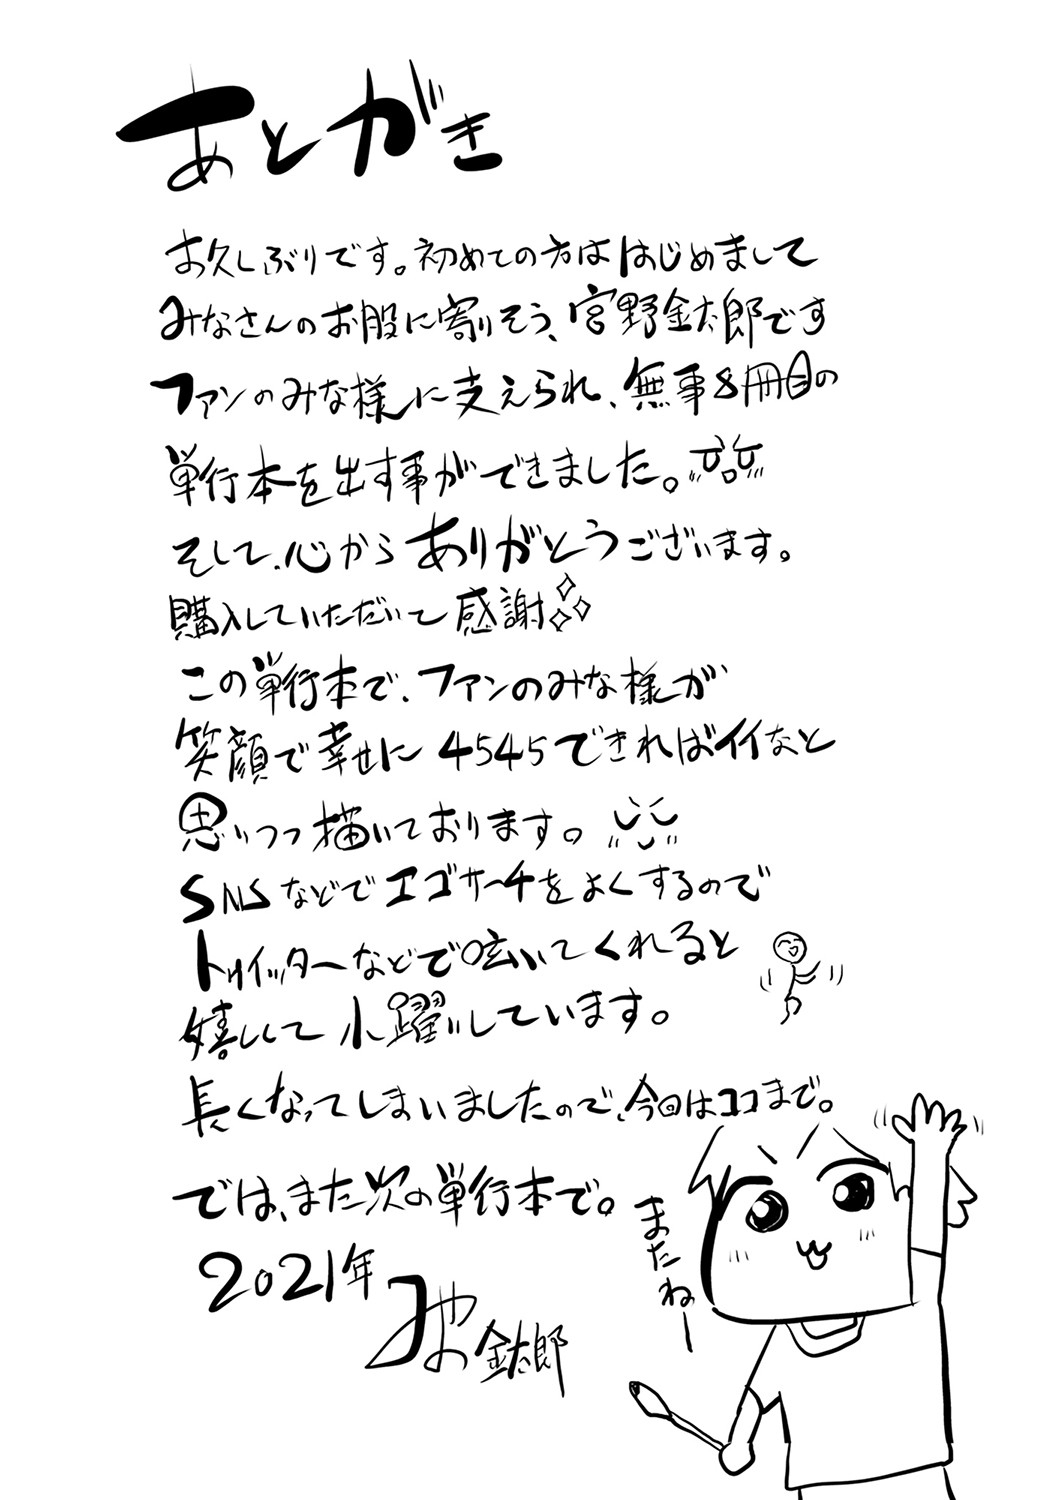 あとがき
お久しぶりです。初めての方ははじめまして
みなさんのお股に寄りそう、宮野金太郎です
ファンのみな様に支えられ、無事8冊目の
単行本を出す事ができました。
そして、心からありがとうございます。
購入していただいて感謝
この単行本で、ファンのみな様が
笑顔で幸せに4545できればイイなと
思いつつ描いております。
SNSなどでエゴサーチをよくするので
トゥイッターなどで呟いてくれると
嬉しくて小躍りしています。
長くなってしまいましたので、今回はココまで。
では、また次の単行本で。
2021年
みやの金太郎
またねー